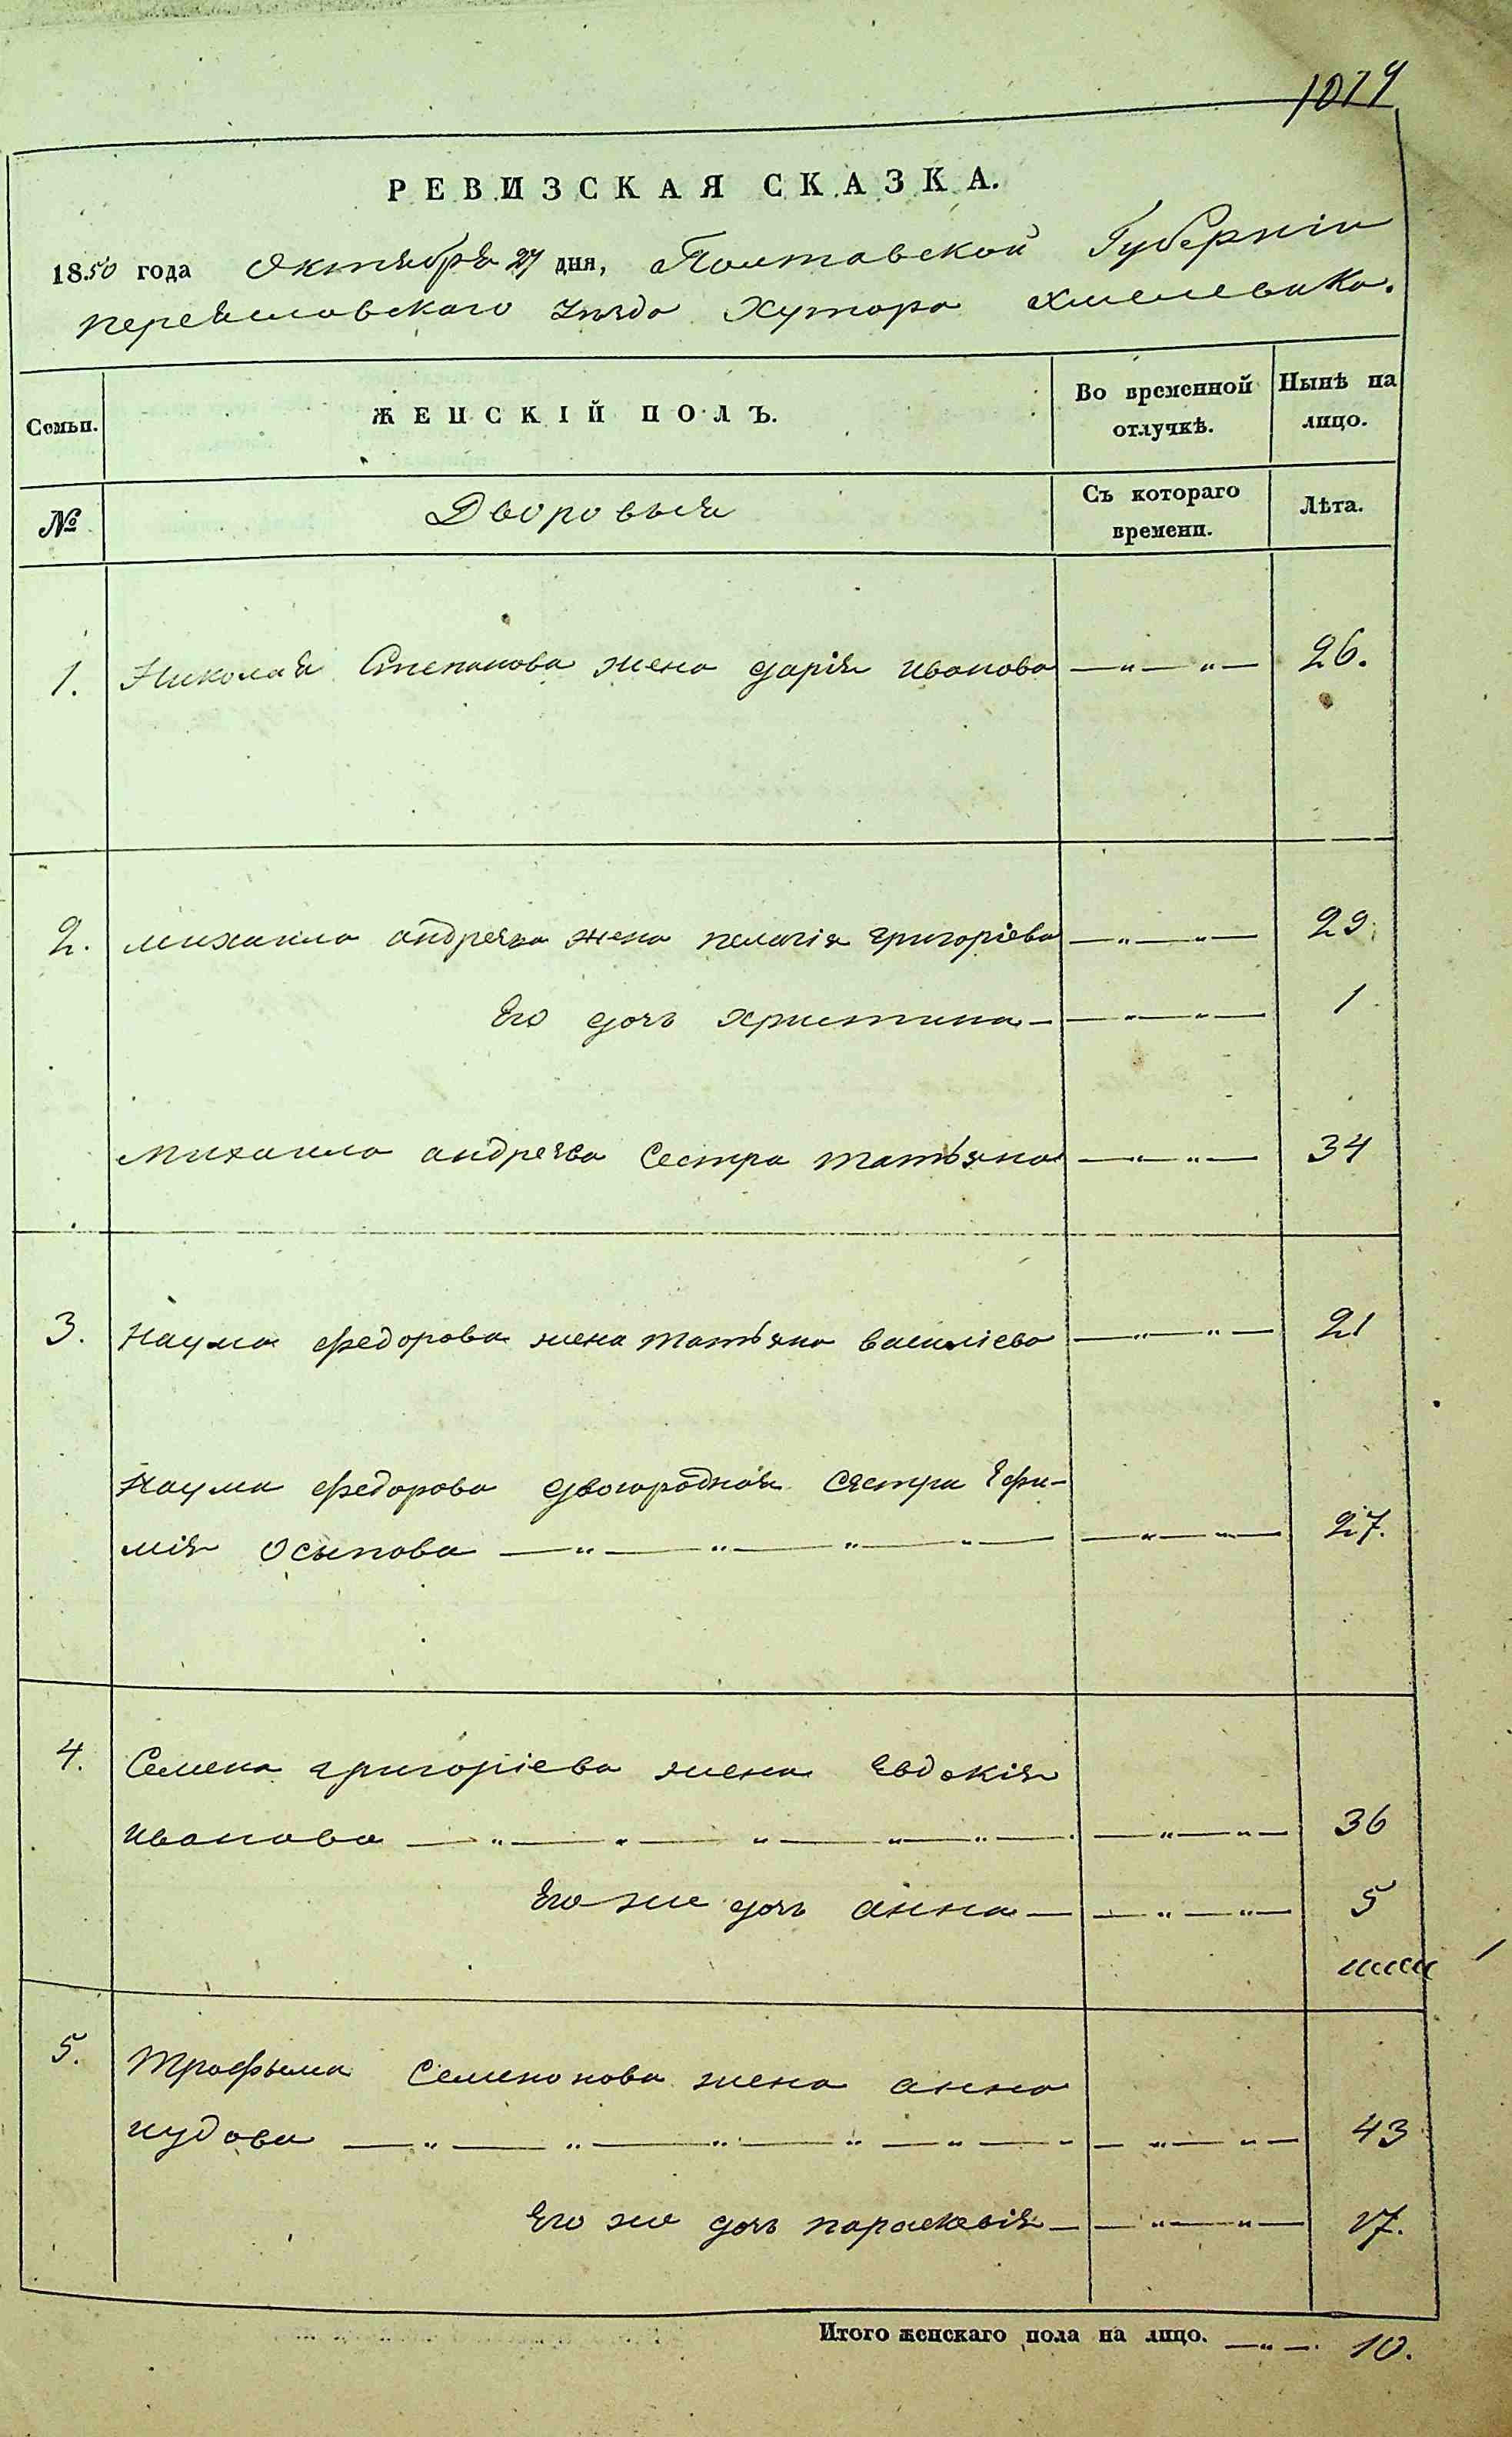 1079
РЕВИЗСКАЯ СКАЗКА.
1850 года Октября 27 дня, Полтавской Губерніи
переяславскаго уѣзда Хутора Хмелевика.
Семьи. ЖЕНСКІЙ ПОЛЪ. Во временной отлучкѣ. Нынѣ на лицо.
№ Дворовыя Съ котораго времени. Лѣта.
1. Николая Степанова жена дарія иванова —„—„— 26.
2. михаила андреева жена пелагія григоріева —„—„— 29.
Его дочь христина —„—„— 1
михаила андреева сестра татьяна —„—„— 34
3. Наума федорова жена татьяна василіева —„—„— 21
Наума федорова двоюродная сестра Ефи-
мія осыпова —„—„—„—„— —„—„— 27.
4. Семена григоріева жена Евдокія
иванова —„—„—„—„—„— —„—„— 36
Его же дочь анна —„—„— 5
5. Трофыма Семенонова жена анна
иудова —„—„—„—„—„— —„—„— 43
Его же дочь параскевія —„—„— 17.
Итого женскаго пола на лицо. —„—. 10.